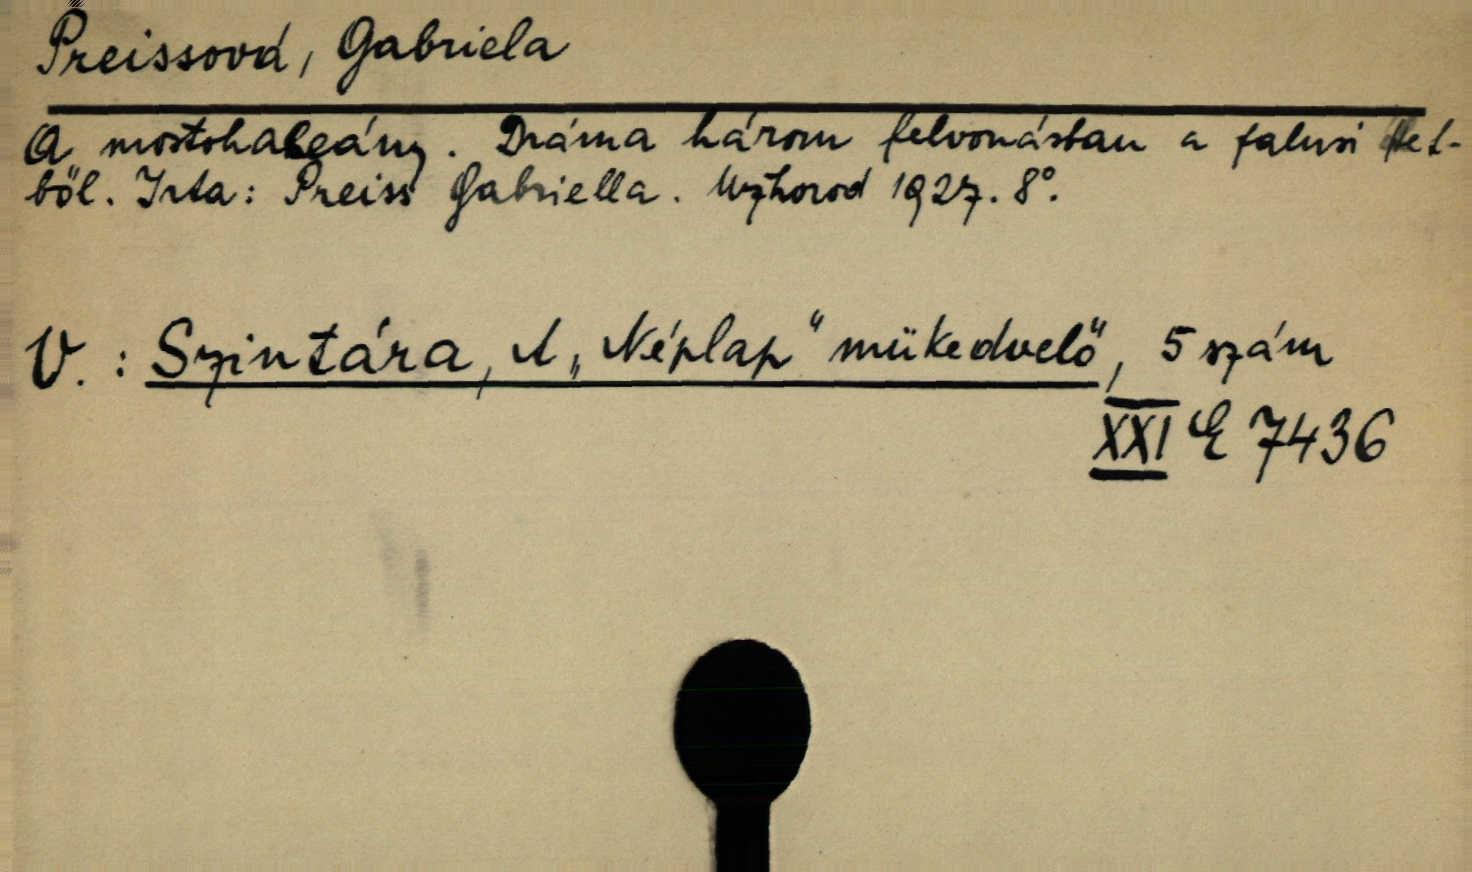 Preissová, Gabriela
A mostohaleány. Dráma három felvonásban a falusi élet-
ből. Irta: Preiss Gabriella. Užhorod 1927. 8°.
V. : Szintára, A „Néplap" műkedvelő, 5 szám
XXI E 7436